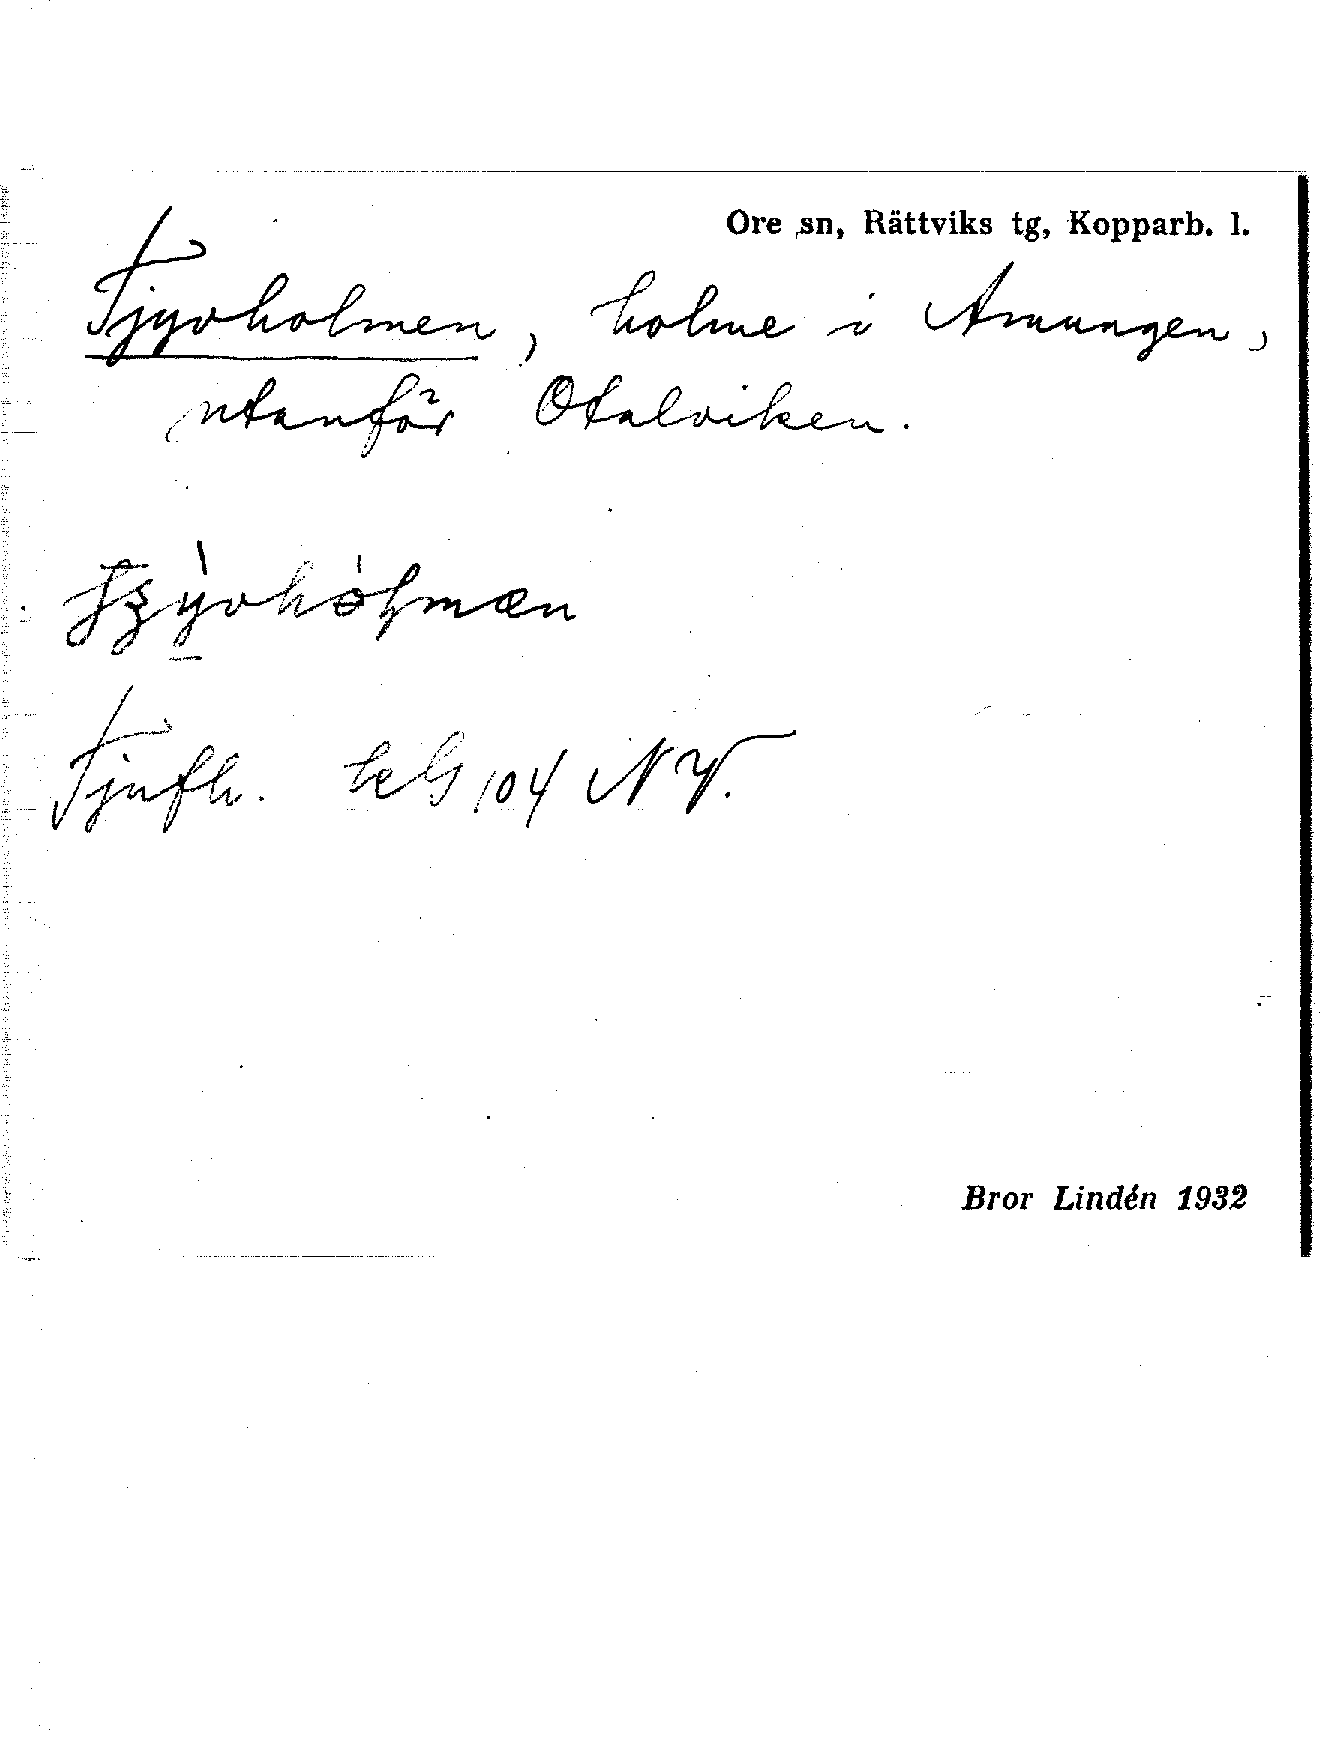 Ore sn, Rättviks tg, Kopparb. l.
Tjyvholmen, holme i Amungen,
utanför Otalviken.
Tjufh. bl 104 NV.
Bror Lindén 1932